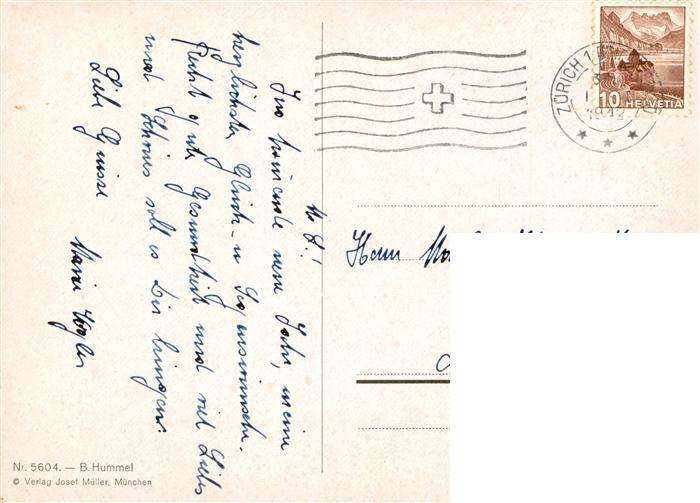 M. L!
Ins kommende neue Jahr, meine
herzlichsten Glück- u. Segenswünsche.
Recht gute Gesundheit und viel Liebes
und Schönes soll es Dir bringen.
Liebe Grüsse
Marie
ZÜRICH 1
10 HELVETIA
Herrn
Nr. 5604. — B. Hummel
© Verlag Josef Müller, München